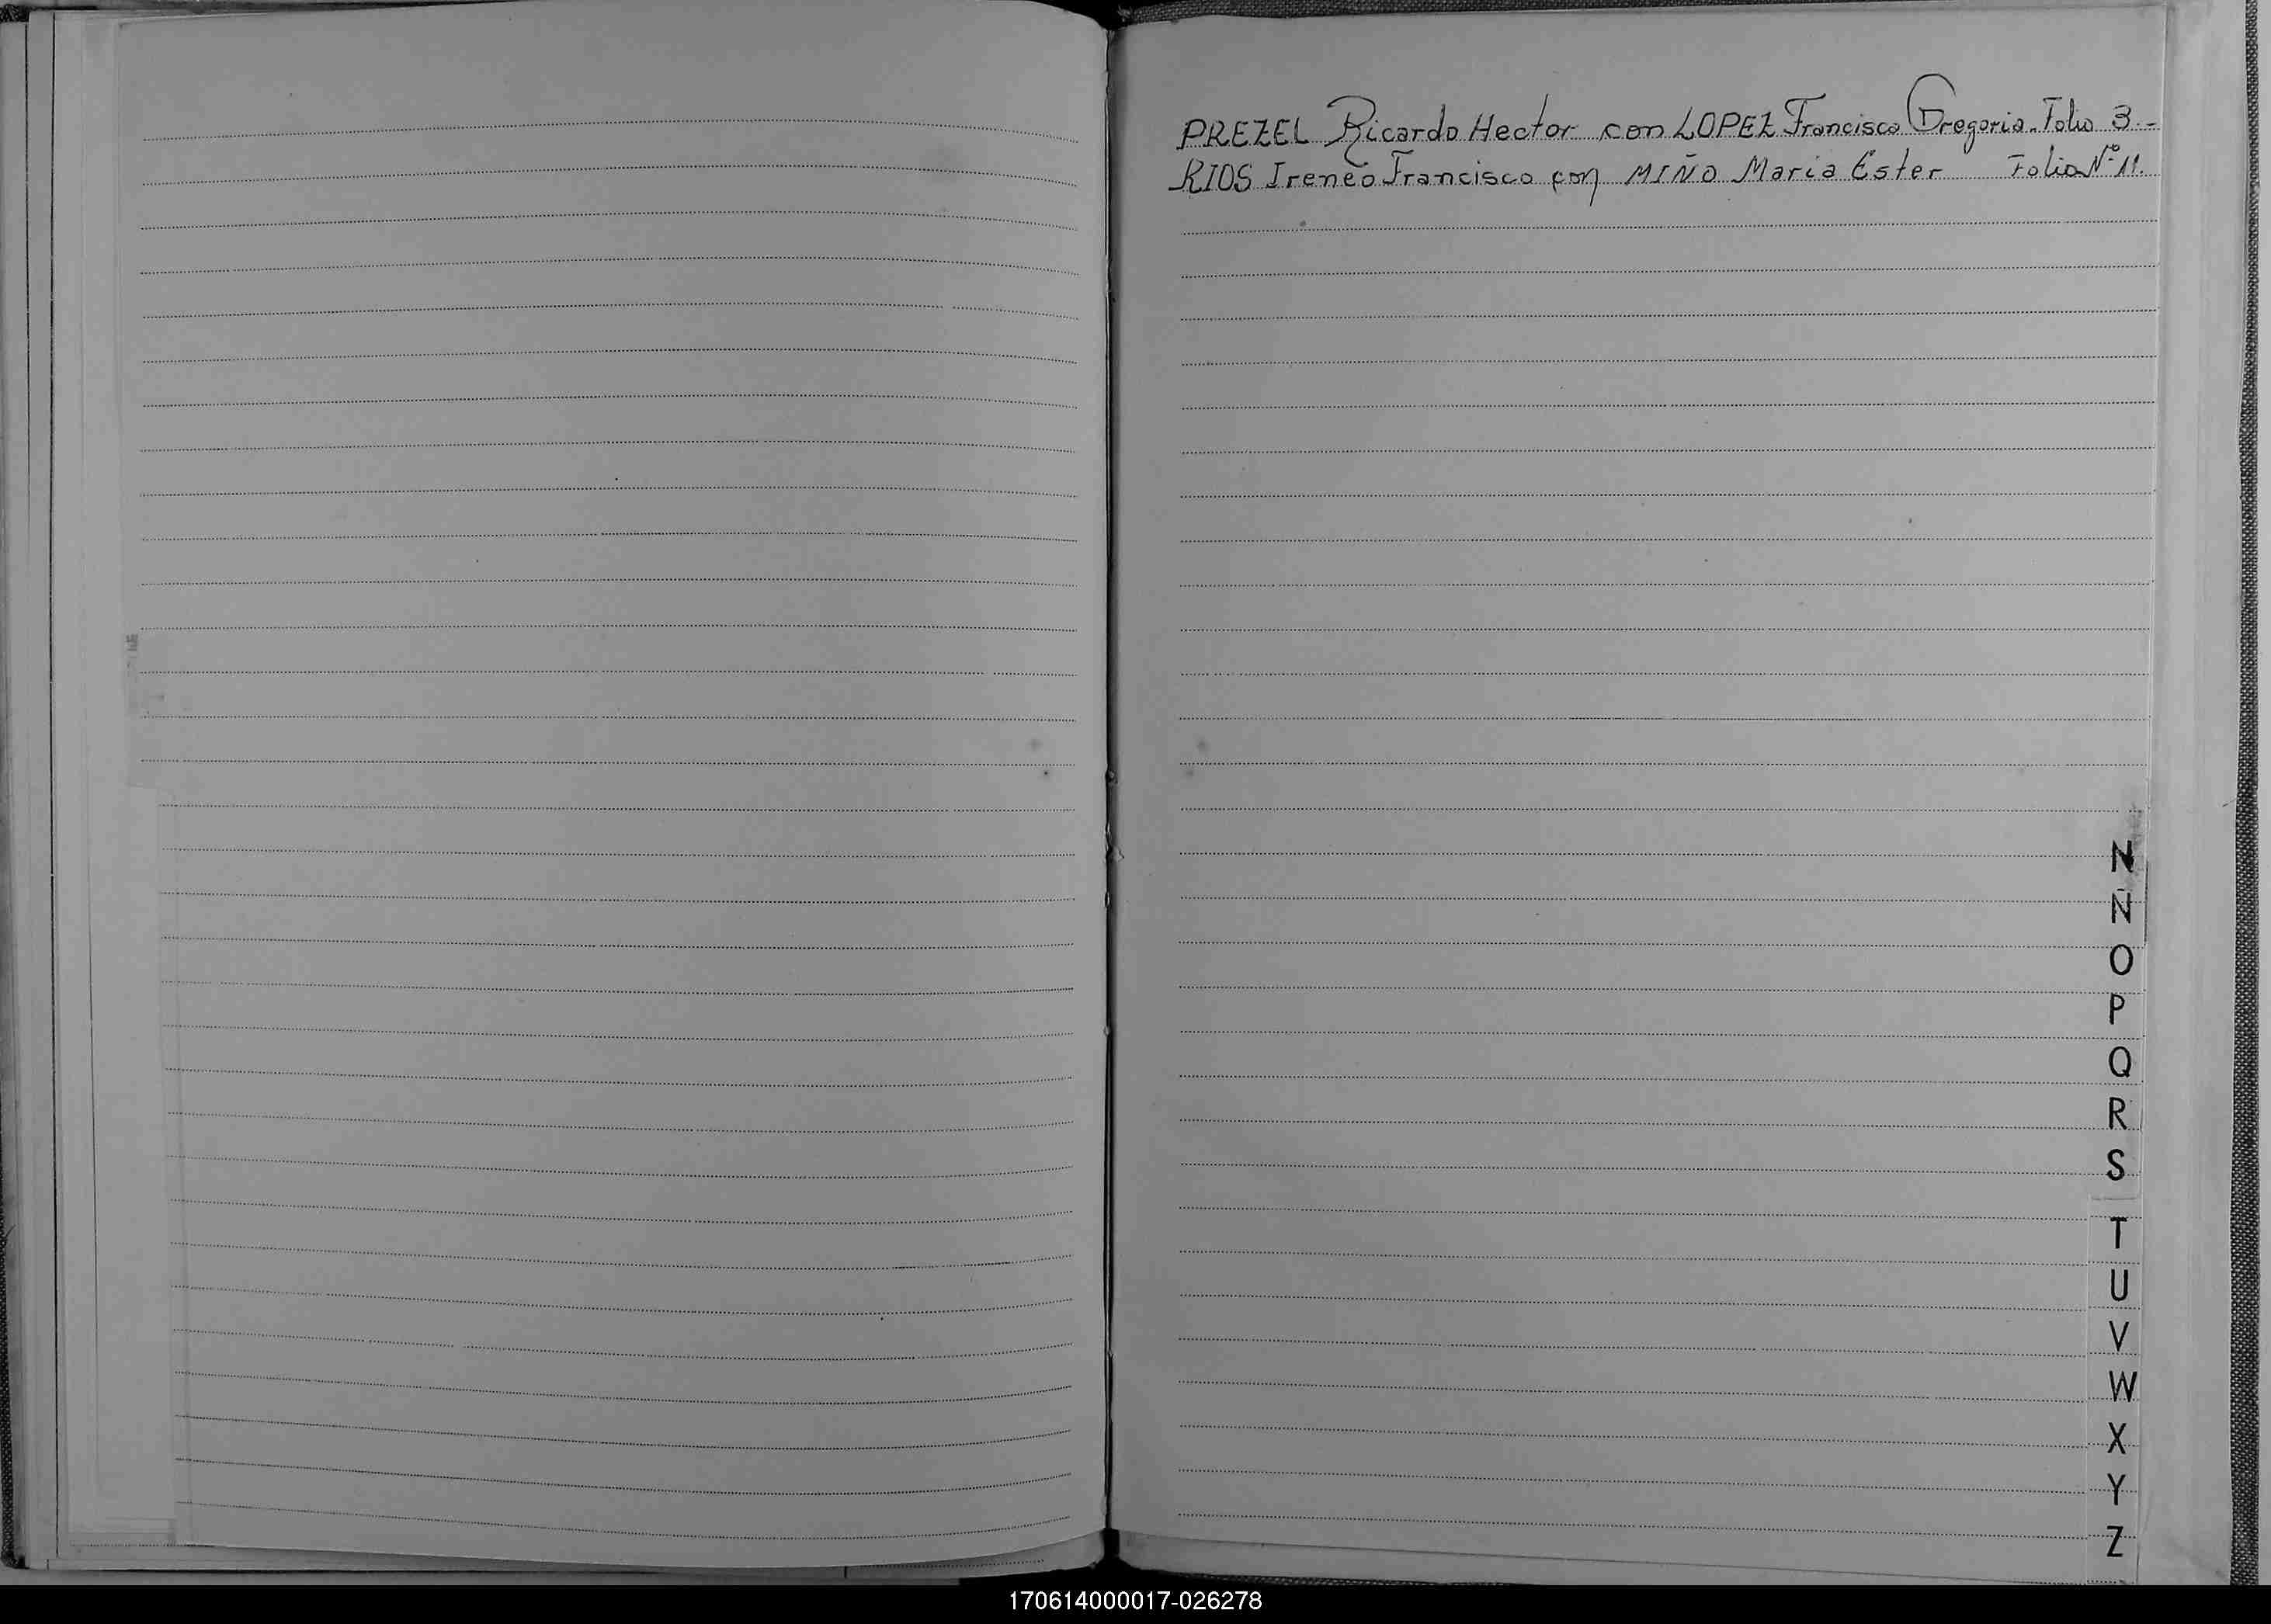 PREZEL Ricardo Hector con LOPEZ Francisca Gregoria. Folio 3.-
RIOS Ireneo Francisco con MIÑO Maria Ester Folio Nº 11.
N
Ñ
O
P
Q
R
S
T
U
V
W
X
Y
Z
170614000017-026278